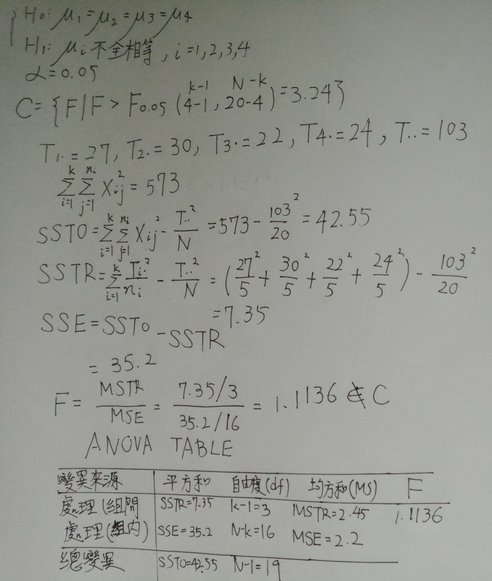 H₀: μ₁=μ₂=μ₃=μ₄
H₁: μi 不全相等, i=1,2,3,4
α=0.05
k-1 N-k
C={F|F > F0.05 (4-1, 20-4)=3.24}
T₁.=27, T₂.=30, T₃.=22, T₄.=24, T..=103
Σ(i=1→k) Σ(j=1→ni) Xij²=573
SSTO=Σ(i=1→k) Σ(j=1→ni) Xij² - T..²/N =573 - 103²/20 =42.55
SSTR=Σ(i=1→k) Ti.²/ni - T..²/N = (27²/5 + 30²/5 + 22²/5 + 24²/5) - 103²/20
=7.35
SSE=SSTO-SSTR
=35.2
F= MSTR/MSE = 7.35/3 / 35.2/16 = 1.1136 ∉ C
ANOVA TABLE
變異來源 平方和 自由度(df) 均方和(MS) F
處理(組間 SSTR=7.35 k-1=3 MSTR=2.45 1.1136
處理(組內) SSE=35.2 N-k=16 MSE=2.2
總變異 SSTO=42.55 N-1=19